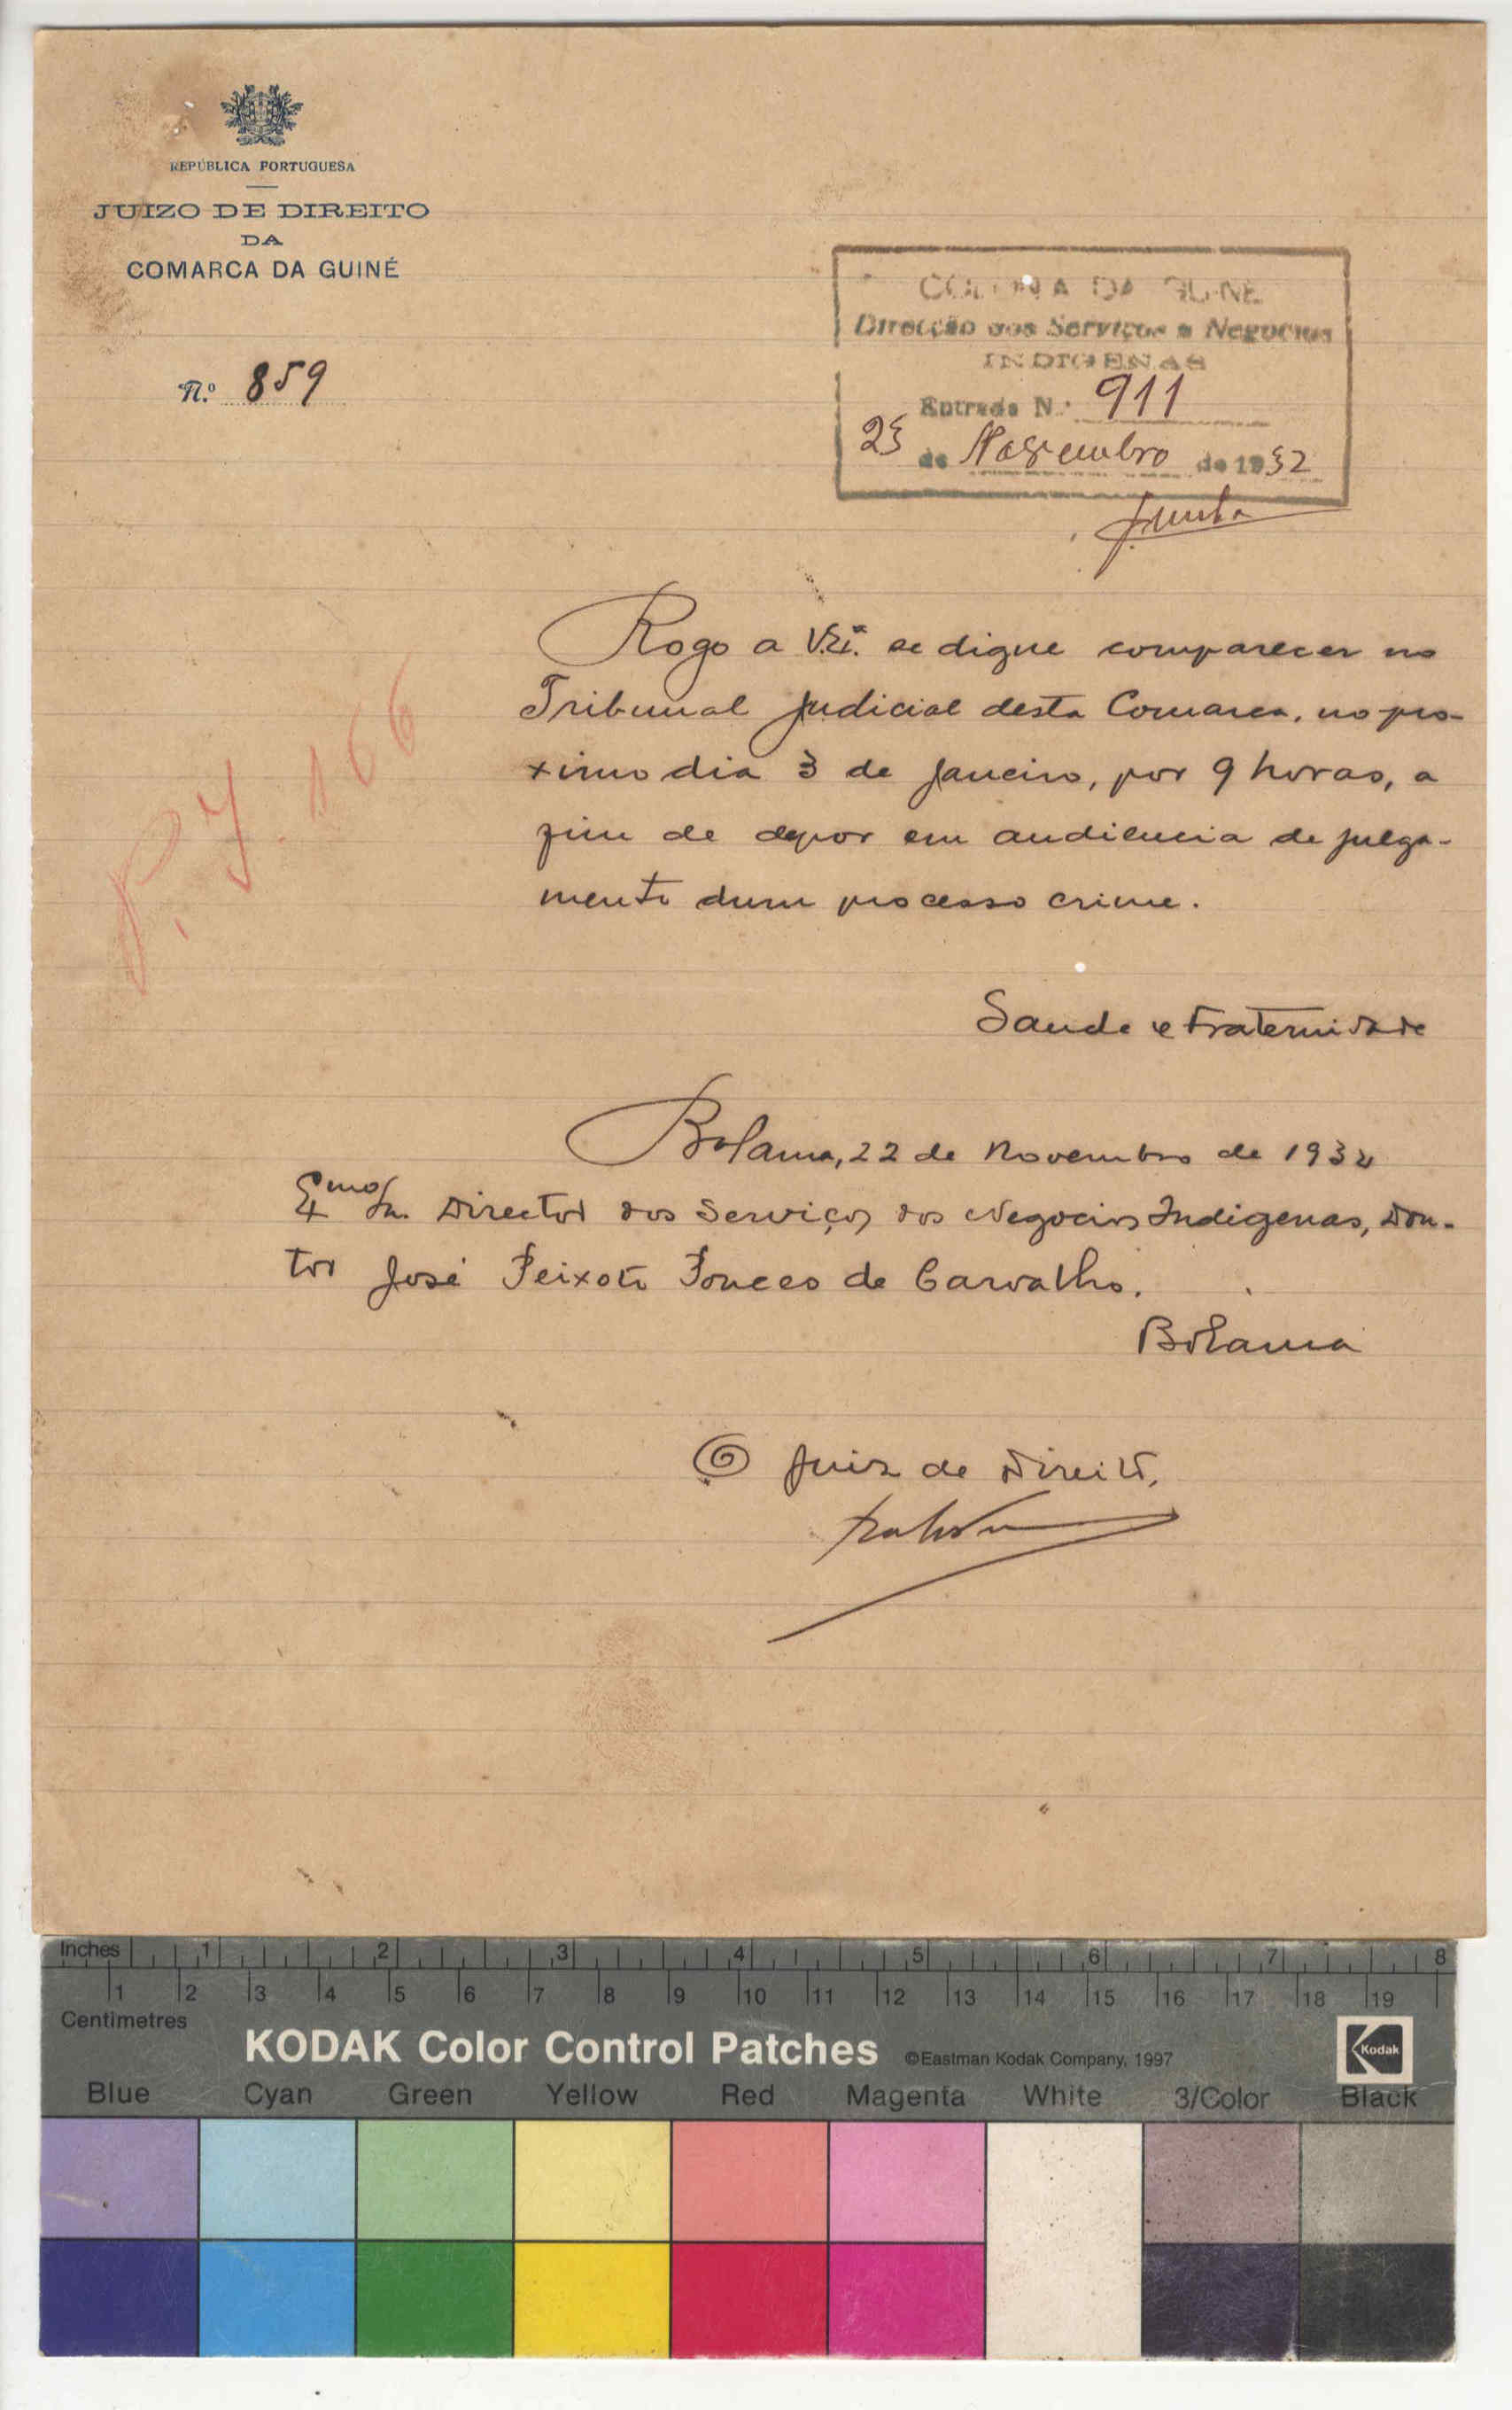 REPÚBLICA PORTUGUESA
JUIZO DE DIREITO
DA
COMARCA DA GUINÉ
N.º 859
COLONIA DA GUINÉ
Direcção dos Serviços e Negocios
INDIGENAS
Entrada N.º 911
23 de Novembro de 1932
P. J. 166
Rogo a V. Ex.ª se digne comparecer no
Tribunal Judicial desta Comarca, no pro-
ximo dia 3 de Janeiro, por 9 horas, a
fim de depor em audiencia de julga-
mento dum processo crime.
Saude e Fraternidade
Bolama, 22 de Novembro de 1932
Exmo Sr. Director dos Serviços dos Negocios Indigenas, Dou-
tor José Peixoto Ponces de Carvalho.
Bolama
O Juiz de Direito,
Inches 1 2 3 4 5 6 7 8
1 2 3 4 5 6 7 8 9 10 11 12 13 14 15 16 17 18 19
Centimetres
KODAK Color Control Patches ©Eastman Kodak Company, 1997 Kodak
Blue Cyan Green Yellow Red Magenta White 3/Color Black